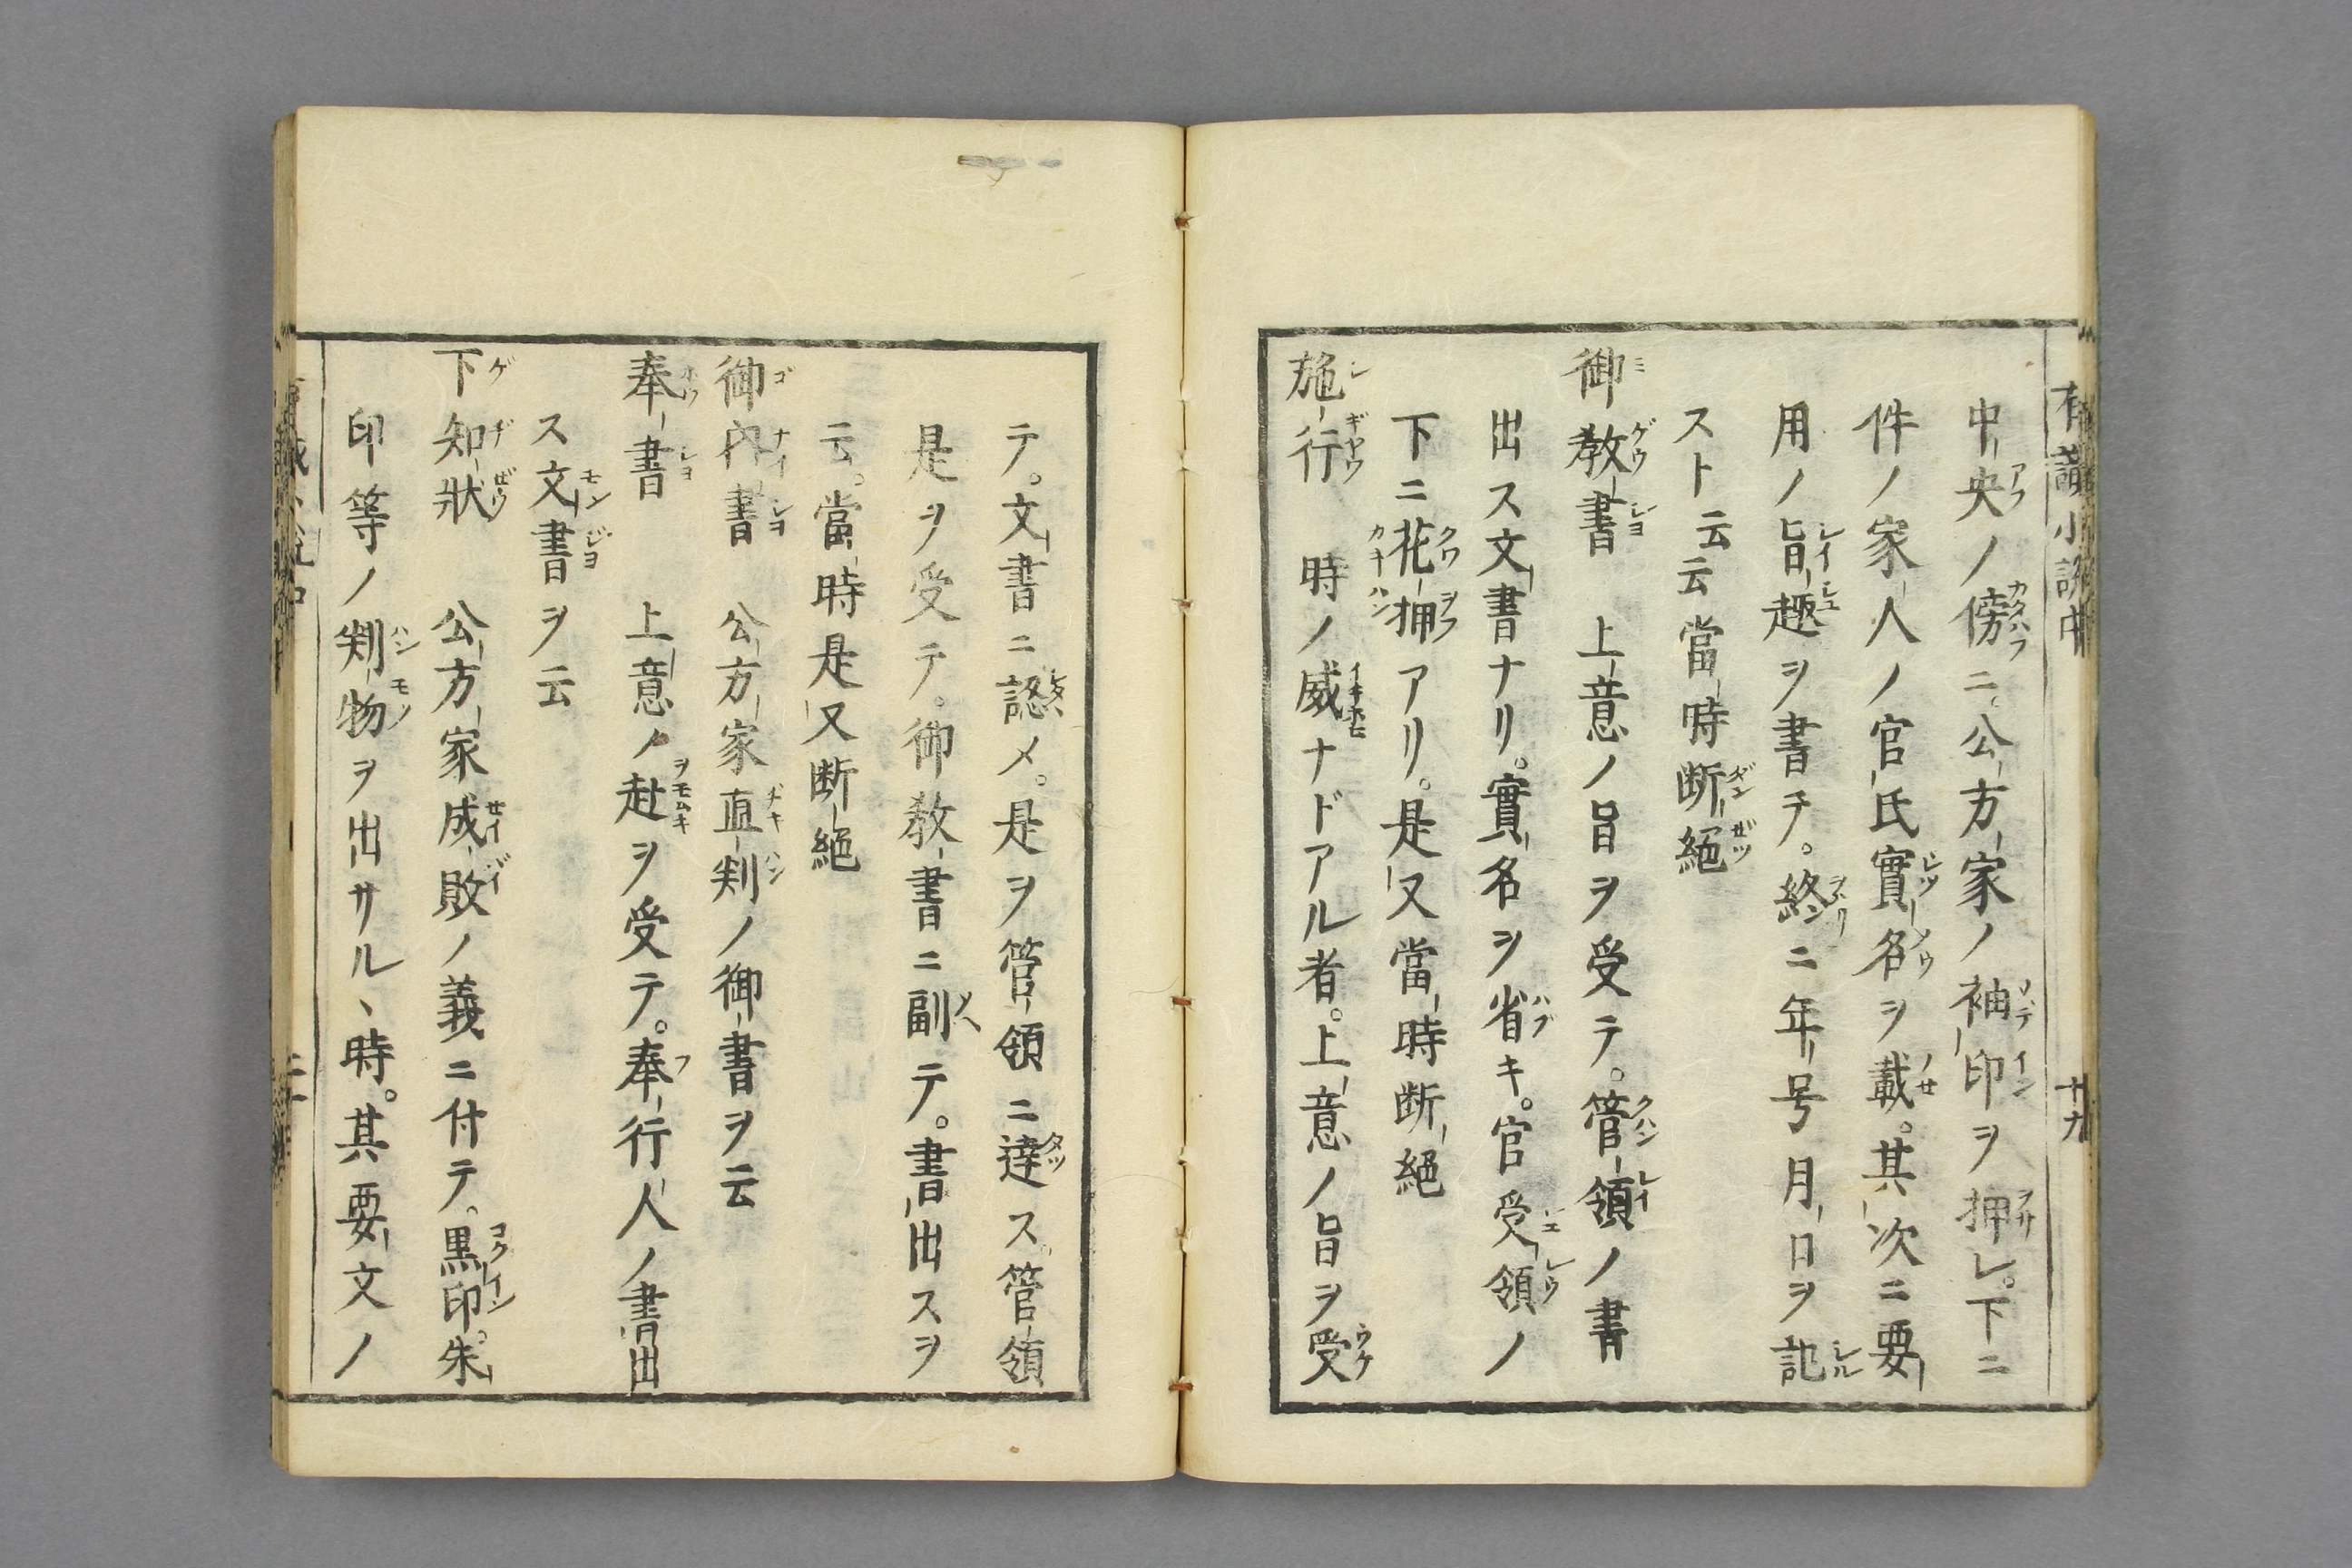 有識小説中
十九
中央ノ傍ニ公方家ノ袖印ヲ押シ。下ニ
件ノ家人ノ官氏實名ヲ載。其次ニ要
用ノ旨趣ヲ書チ。終ニ年号月日ヲ記
スト云云當時断絶
御教書 上意ノ旨ヲ受テ。管領ノ書
出ス文書ナリ。實名ヲ省キ。官受領ノ
下ニ花押アリ。是又當時断絶
施行 時ノ威ナドアル者。上意ノ旨ヲ受
テ。文書ニ認メ。是ヲ管領ニ達ス。管領
是ヲ受テ。御教書ニ副テ。書出スヲ
云。當時是又断絶
御内書 公方家直判ノ御書ヲ云
奉書 上意ノ赴ヲ受テ。奉行人ノ書出
ス文書ヲ云
下知狀 公方家成敗ノ義ニ付テ。黒印。朱
印等ノ判物ヲ出サルヽ時。其要文ノ